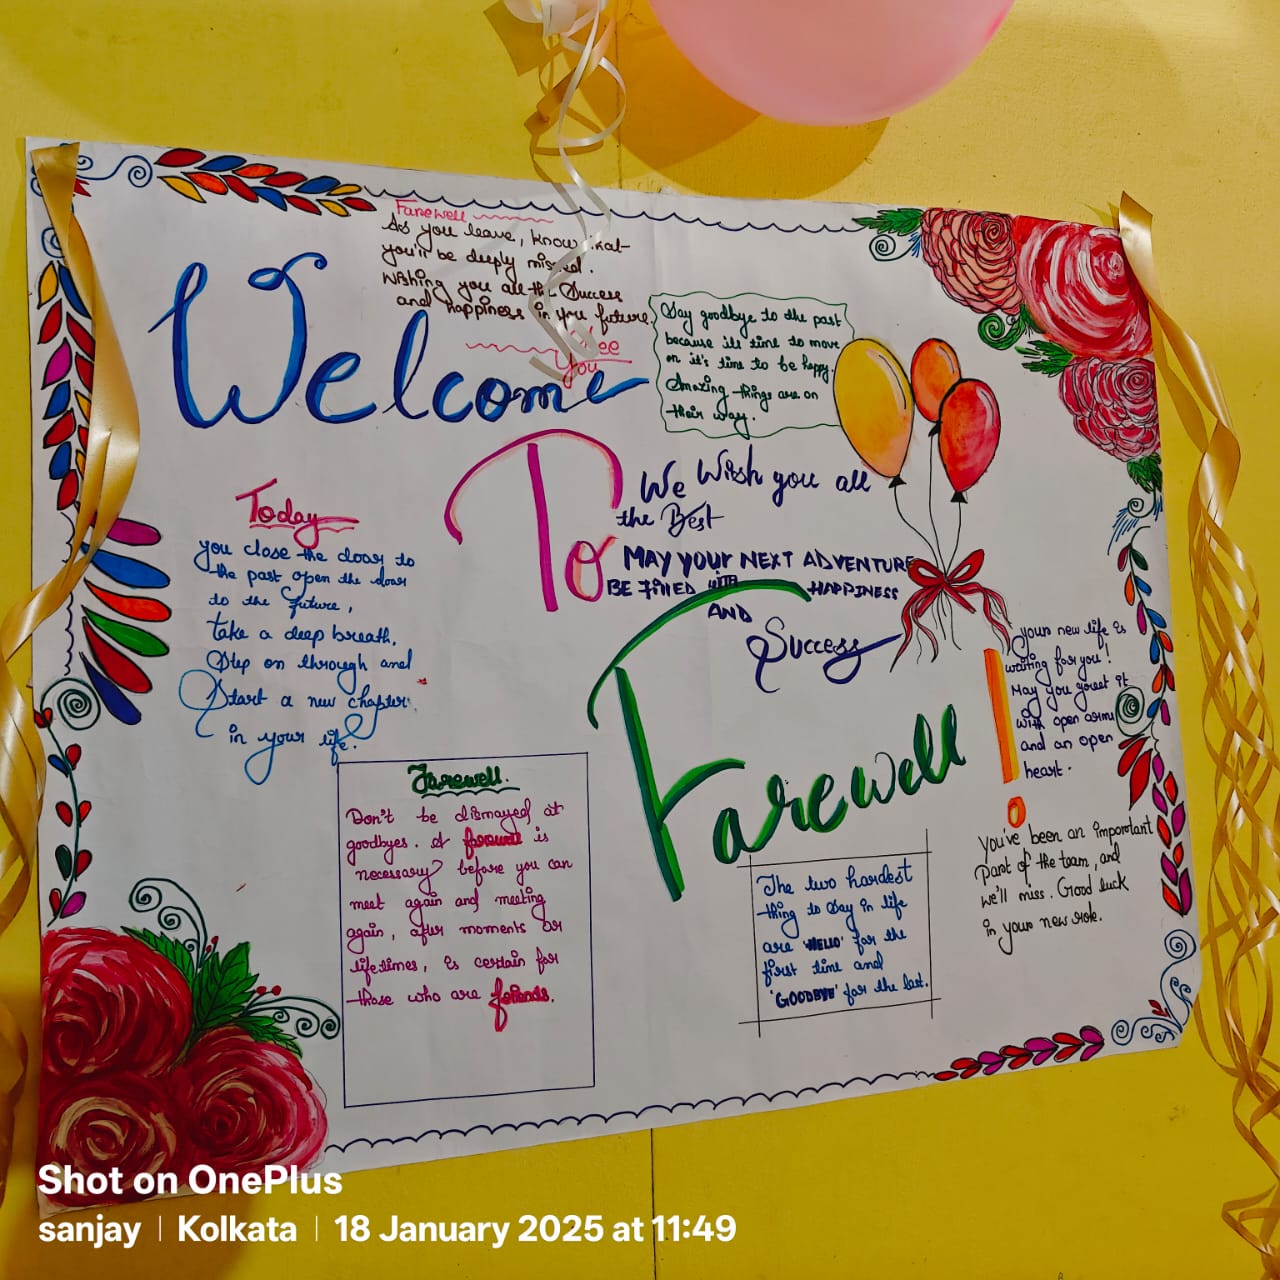 Farewell
As you leave, know that
you'll be deeply missed.
Wishing you all the Success
and happiness in you future.
you
Welcome
Say goodbye to the past
because its time to move
on it's time to be happy.
Amazing things are on
their way.
To
We Wish you all
the Best
MAY YOUR NEXT ADVENTURE
BE FILLED WITH HAPPINESS
AND
Success
Today
you close the door to
the past open the door
to the future,
take a deep breath.
Step on through and
Start a new chapter
in your life.
Farewell !
your new life is
waiting for you!
May you greet it
with open arms
and an open
heart.
Farewell.
Don't be dismayed at
goodbyes. A farewell is
necessary before you can
meet again and meeting
again, after moments or
lifetimes, is certain for
those who are friends.
The two hardest
thing to say in life
are 'HELLO' for the
first time and
'GOODBYE' for the last.
You've been an important
part of the team, and
we'll miss. Good luck
in your new role.
Shot on OnePlus
sanjay | Kolkata | 18 January 2025 at 11:49